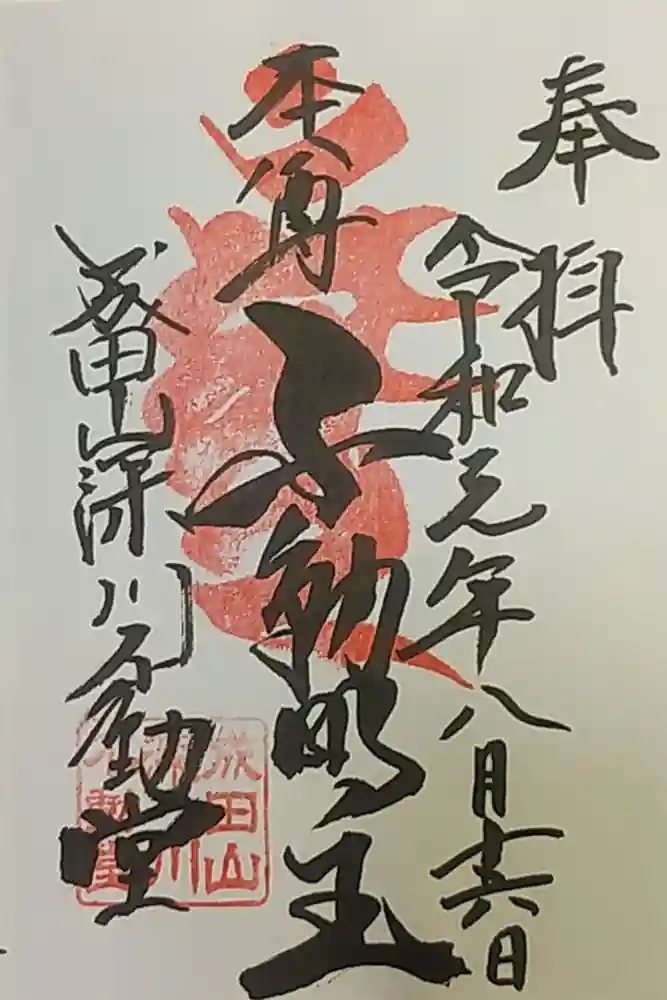 奉拝
令和元年八月十六日
本尊
不動明王
成田山深川不動堂
成田山
深川
不動堂